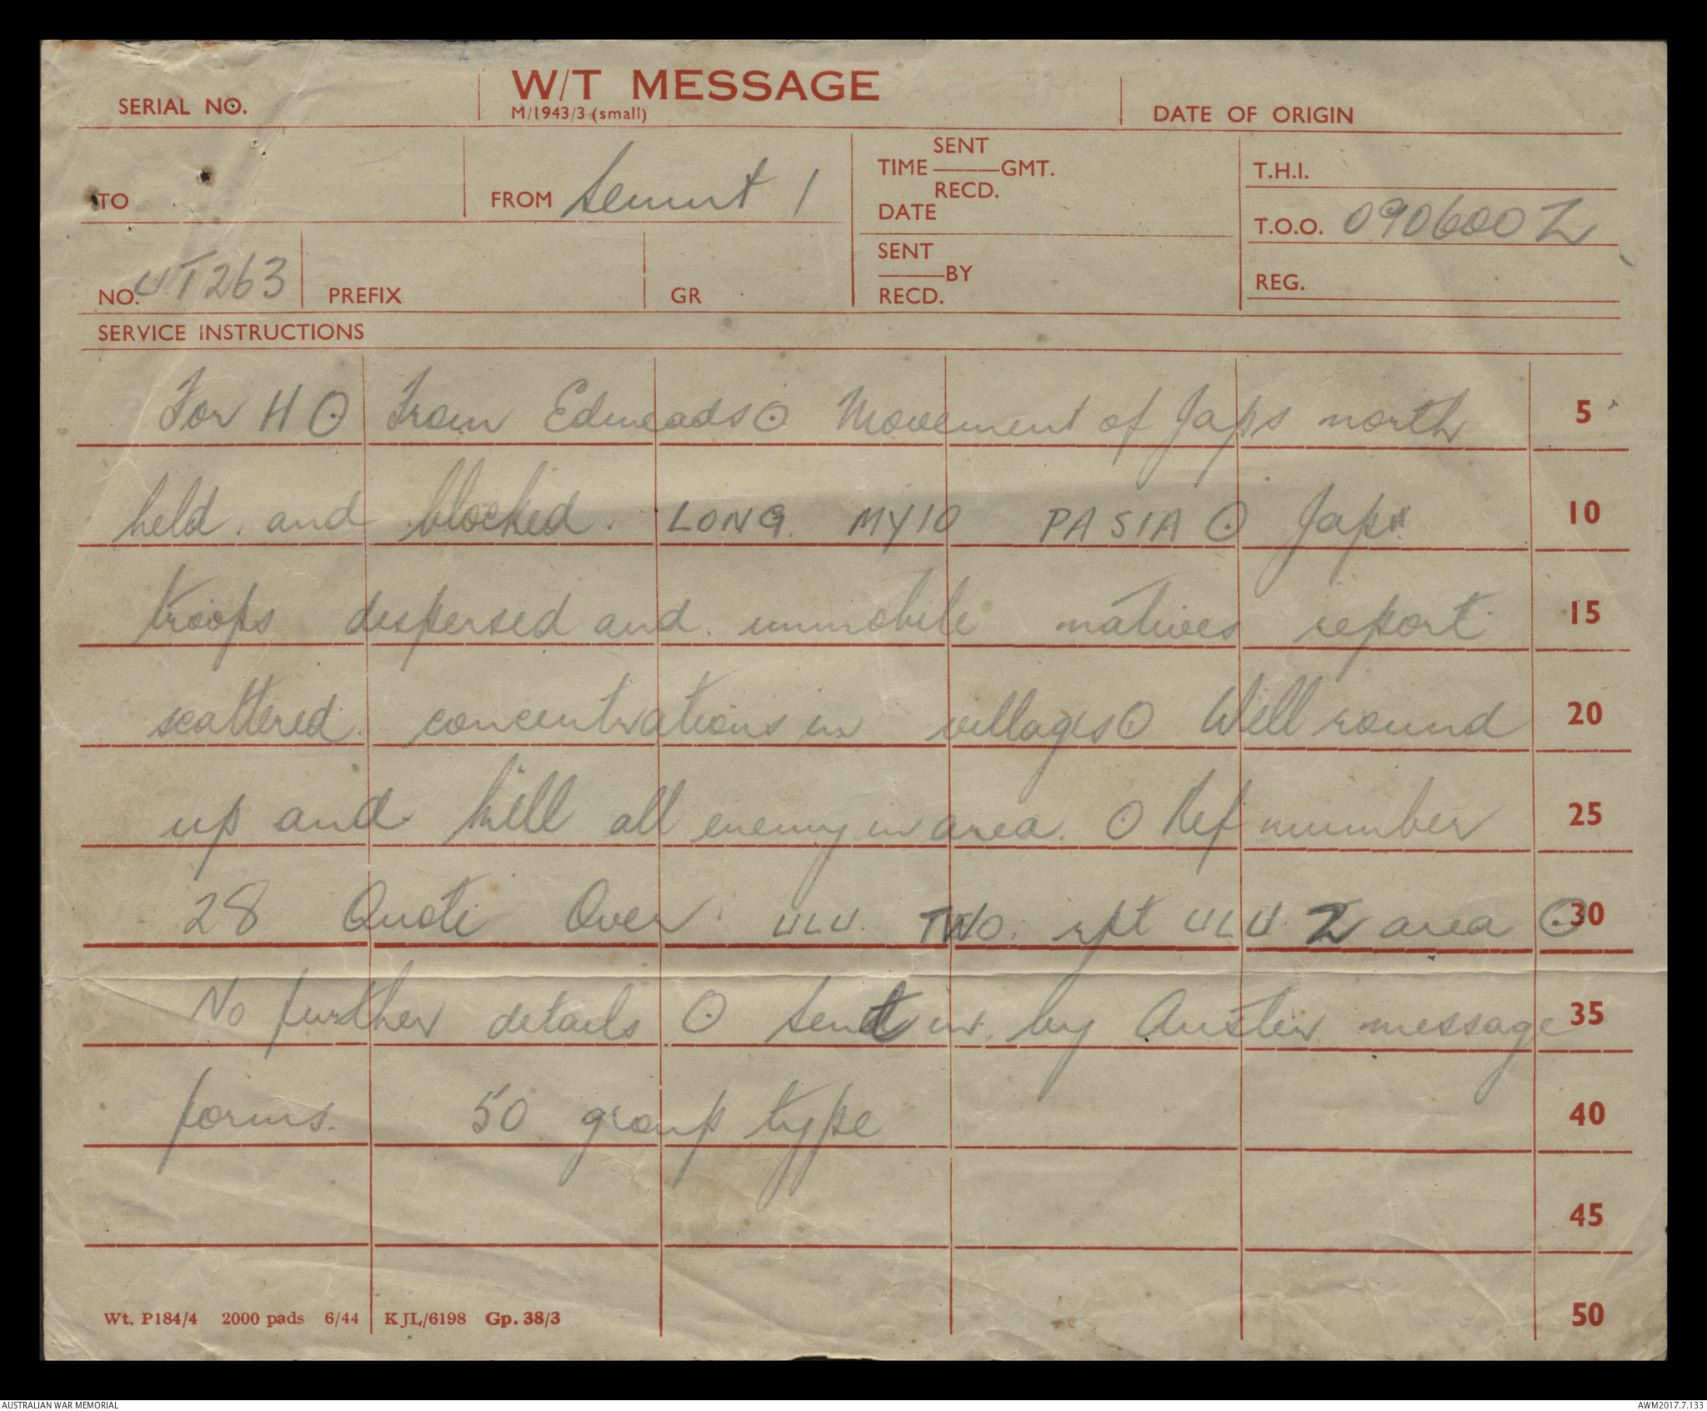 SERIAL NO.
W/T MESSAGE
M/1943/3 (small)
DATE OF ORIGIN
TO
FROM Semut 1
SENT
TIME ——— GMT.
RECD.
DATE
T.H.I.
T.O.O. 090600Z
NO. UT263
PREFIX
GR
SENT
——— BY
RECD.
REG.
SERVICE INSTRUCTIONS
For H ⊙ From Edmeads ⊙ Movement of Japs north 5
held and blocked. LONG MYIO PASIA ⊙ Jap 10
troops dispersed and immobile natives report 15
scattered concentrations in villages ⊙ Will round 20
up and kill all enemy in area. ⊙ Ref number 25
28 Quote Over ULU TWO. rpt ULU 2 area ⊙ 30
No further details ⊙ Send in by Auster message 35
forms. 50 group type 40
45
50
Wt. P184/4 2000 pads 6/44 KJL/6198 Gp. 38/3
AUSTRALIAN WAR MEMORIAL
AWM2017.7.133